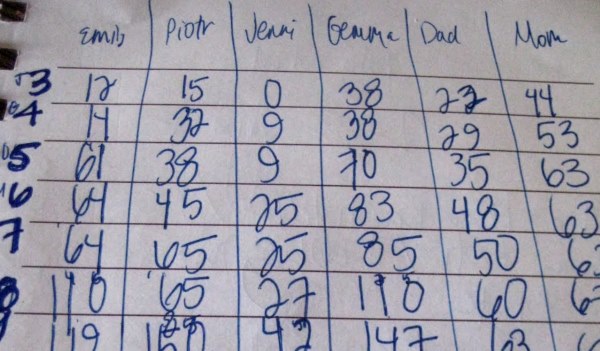 Emils Piotr Jenni Gemma Dad Mom
3 12 15 0 38 22 44
4 14 32 9 38 29 53
5 61 38 9 70 35 63
6 64 45 25 83 48 63
7 64 65 25 85 50
8 110 65 27 110 60
119 42 147 63